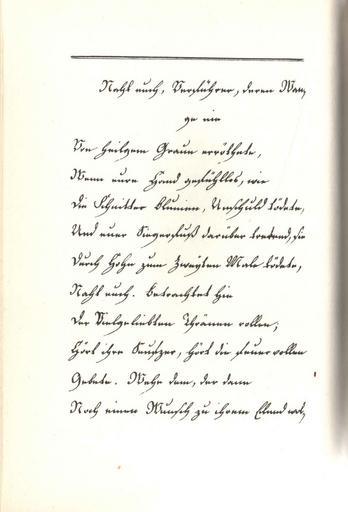 Naht euch, Verführer, deren Wan,
ge nie
Von heilgem Graun erröthete,
Wenn eure Hand gefühllos, wie
die Schnitter Blumen, Unschuld tödete,
Und euer Siegerfuß darüber tretend, sie
durch Hohn zum Zweyten Male tödete,
Naht euch. Betrachtet hie
der Vielgeliebten Thränen rollen;
Hört ihre Seufzer, hört die feuervollen
Gebete. Wehe dem, der dann
Noch einen Wunsch zu ihrem Elend wa,